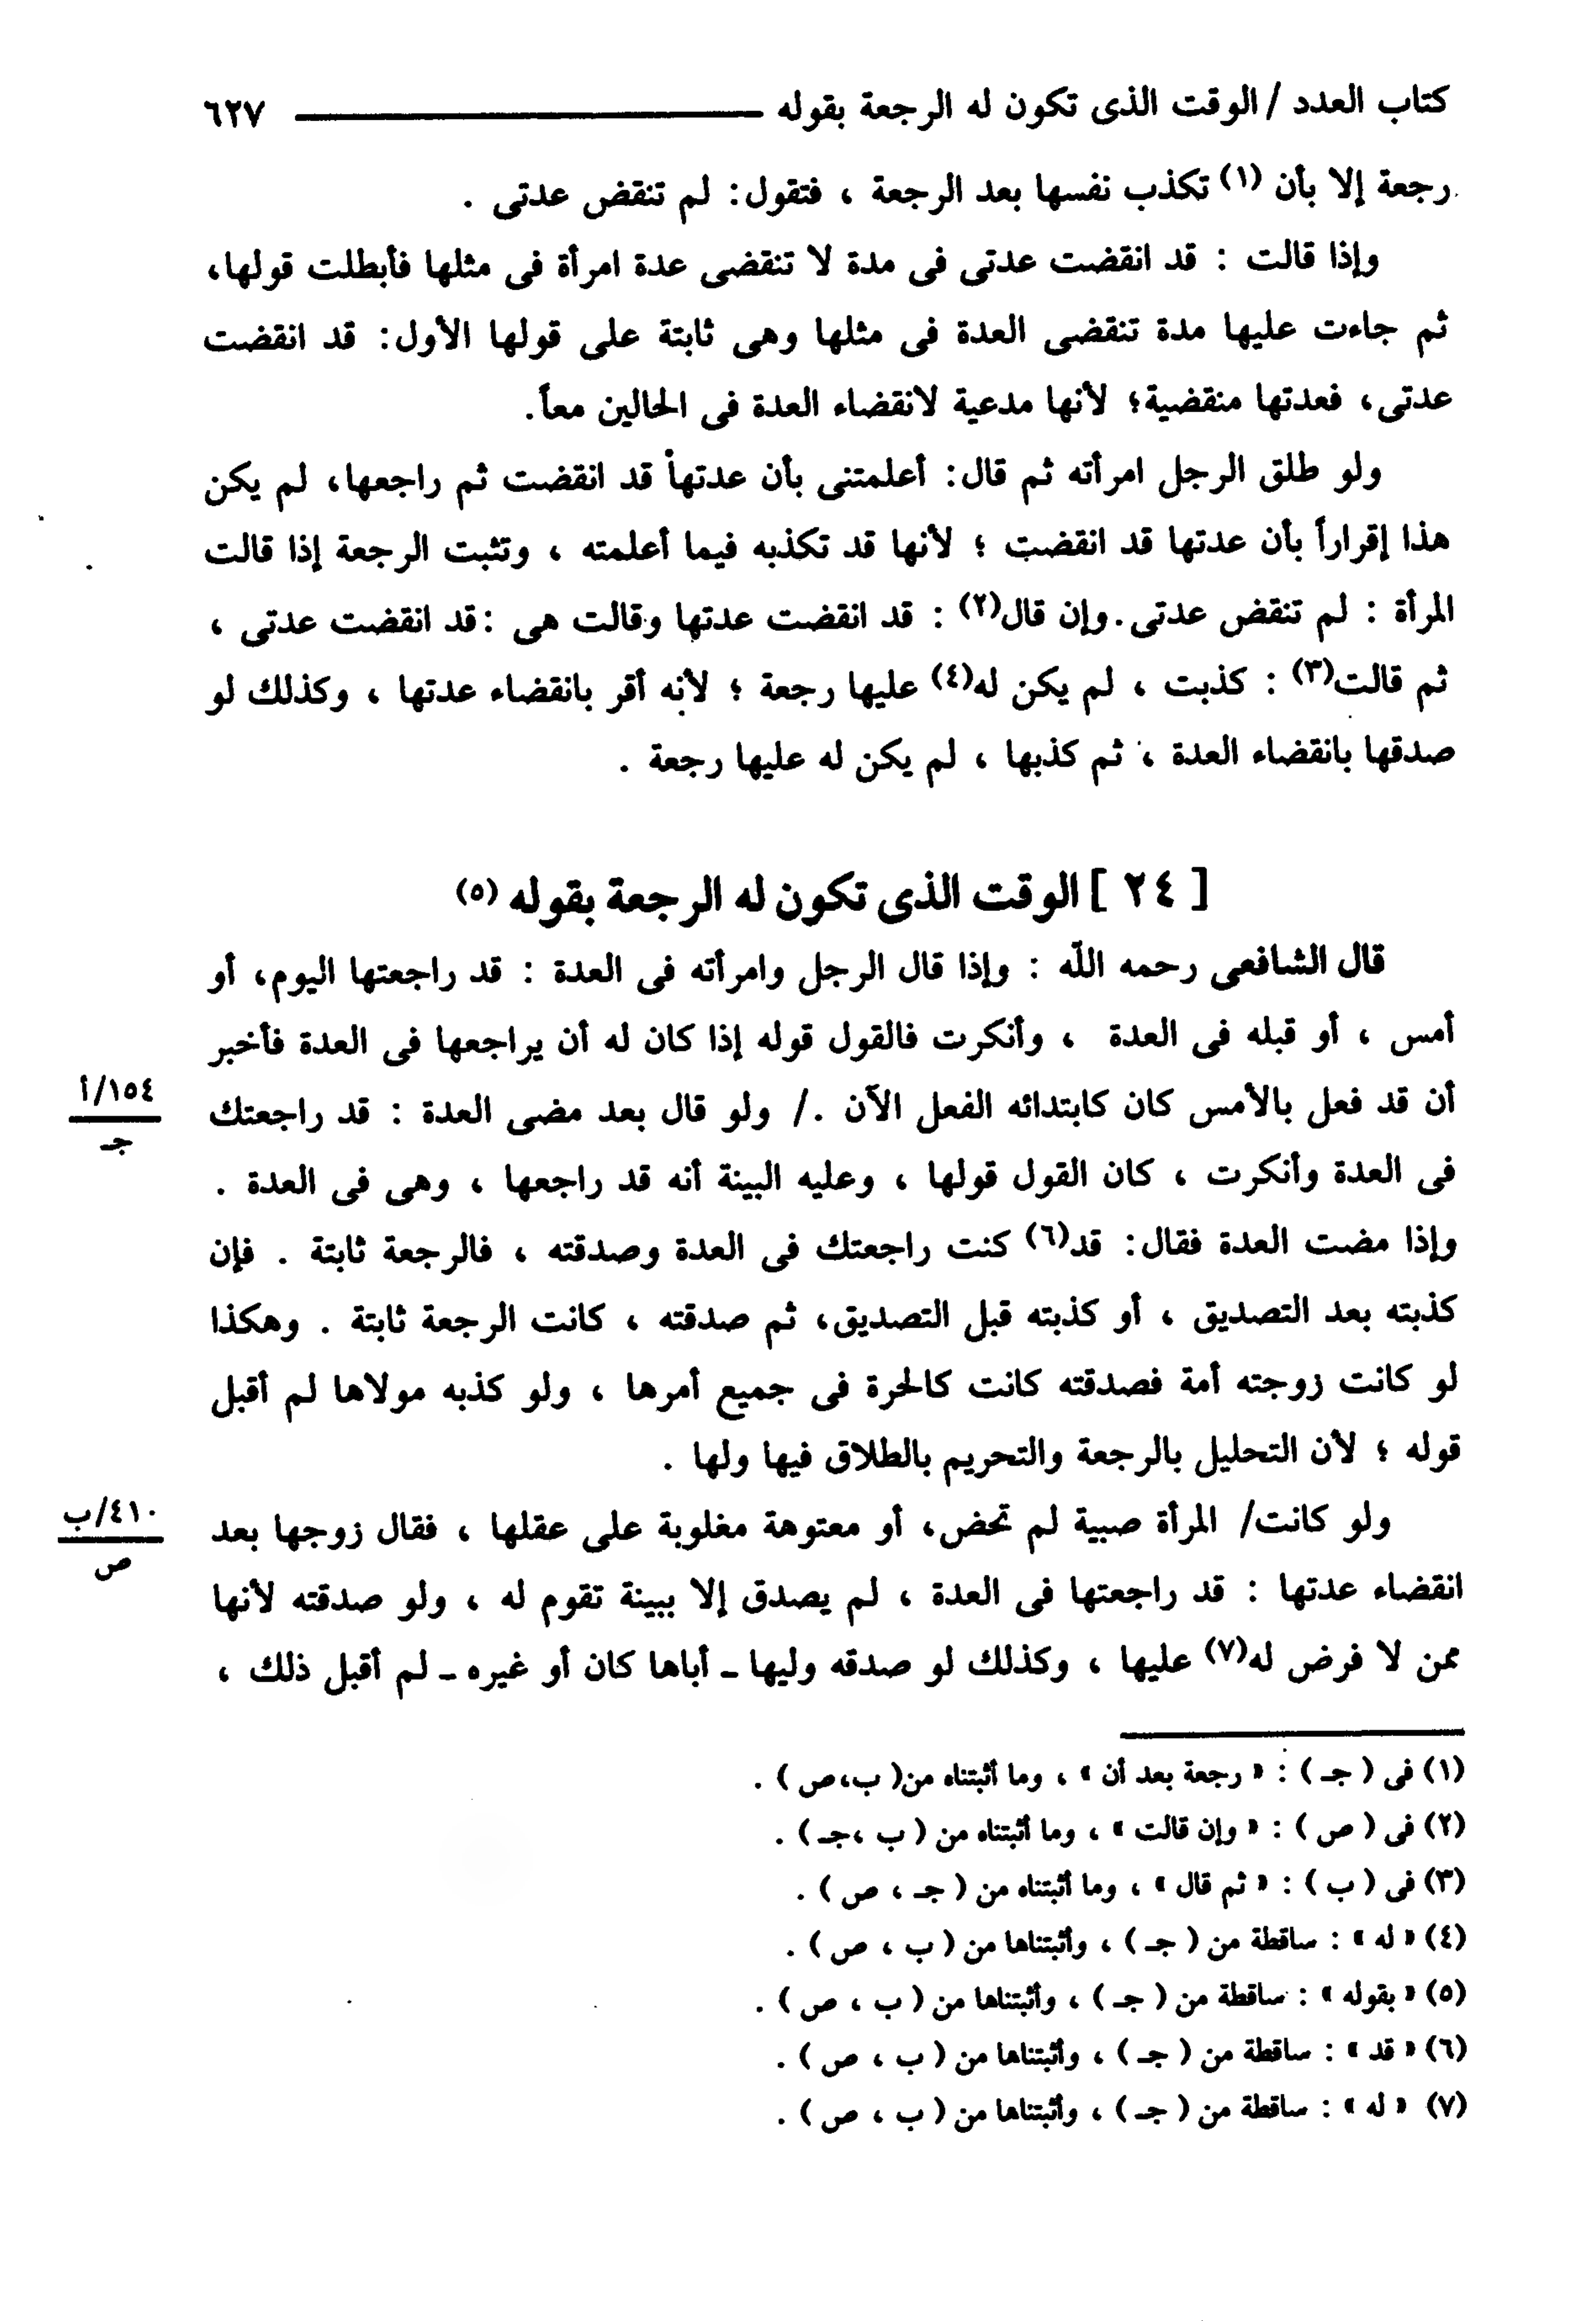 كتاب العدد / الوقت الذى تكون له الرجعة بقوله ـــــــــــــــــــ ٦٢٧
رجعة إلا بأن (١) تكذب نفسها بعد الرجعة ، فتقول: لم تنقض عدتى .
وإذا قالت : قد انقضت عدتى فى مدة لا تنقضى عدة امرأة فى مثلها فأبطلت قولها،
ثم جاءت عليها مدة تنقضى العدة فى مثلها وهى ثابتة على قولها الأول: قد انقضت
عدتى، فعدتها منقضية؛ لأنها مدعية لانقضاء العدة فى الحالين معاً.
ولو طلق الرجل امرأته ثم قال: أعلمتنى بأن عدتها قد انقضت ثم راجعها، لم يكن
هذا إقراراً بأن عدتها قد انقضت ؛ لأنها قد تكذبه فيما أعلمته ، وتثبت الرجعة إذا قالت
المرأة : لم تنقض عدتى. وإن قال(٢) : قد انقضت عدتها وقالت هى : قد انقضت عدتى ،
ثم قالت(٣) : كذبت ، لم يكن له(٤) عليها رجعة ؛ لأنه أقر بانقضاء عدتها ، وكذلك لو
صدقها بانقضاء العدة ، ثم كذبها ، لم يكن له عليها رجعة .
[ ٢٤ ] الوقت الذى تكون له الرجعة بقوله (٥)
قال الشافعى رحمه الله : وإذا قال الرجل وامرأته فى العدة : قد راجعتها اليوم، أو
أمس ، أو قبله فى العدة ، وأنكرت فالقول قوله إذا كان له أن يراجعها فى العدة فأخبر
أن قد فعل بالأمس كان كابتدائه الفعل الآن ./ ولو قال بعد مضى العدة : قد راجعتك
١٥٤/أ
جـ
فى العدة وأنكرت ، كان القول قولها ، وعليه البينة أنه قد راجعها ، وهى فى العدة .
وإذا مضت العدة فقال: قد(٦) كنت راجعتك فى العدة وصدقته ، فالرجعة ثابتة . فإن
كذبته بعد التصديق ، أو كذبته قبل التصديق، ثم صدقته ، كانت الرجعة ثابتة . وهكذا
لو كانت زوجته أمة فصدقته كانت كالحرة فى جميع أمرها ، ولو كذبه مولاها لم أقبل
قوله ؛ لأن التحليل بالرجعة والتحريم بالطلاق فيها ولها .
ولو كانت/ المرأة صبية لم تحض، أو معتوهة مغلوبة على عقلها ، فقال زوجها بعد
٤١٠/ب
ص
انقضاء عدتها : قد راجعتها فى العدة ، لم يصدق إلا ببينة تقوم له ، ولو صدقته لأنها
ممن لا فرض له(٧) عليها ، وكذلك لو صدقه وليها ـ أباها كان أو غيره ـ لم أقبل ذلك ،
(١) فى ( جـ ) : « رجعة بعد أن » ، وما أثبتناه من( ب،ص ) .
(٢) فى ( ص ) : « وإن قالت » ، وما أثبتناه من ( ب ،جـ ) .
(٣) فى ( ب ) : « ثم قال » ، وما أثبتناه من ( جـ ، ص ) .
(٤) « له » : ساقطة من ( جـ ) ، وأثبتناها من ( ب ، ص ) .
(٥) « بقوله » : ساقطة من ( جـ ) ، وأثبتناها من ( ب ، ص ) .
(٦) « قد » : ساقطة من ( جـ ) ، وأثبتناها من ( ب ، ص ) .
(٧) « له » : ساقطة من ( جـ ) ، وأثبتناها من ( ب ، ص ) .